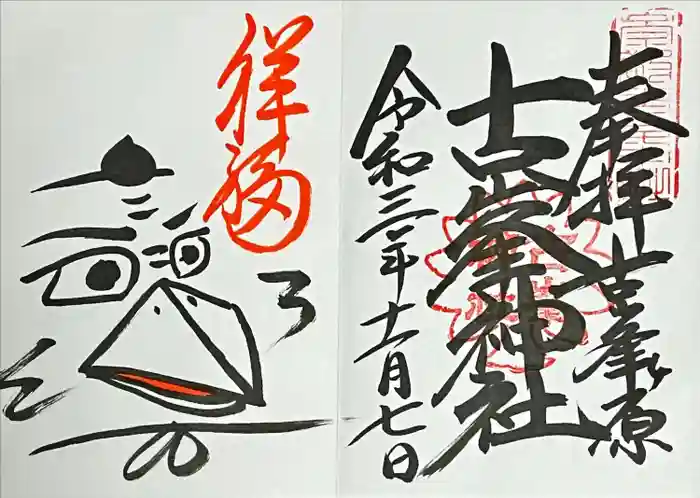 奉拝 古峯ヶ原
古峯神社
令和三年十一月七日
祥福